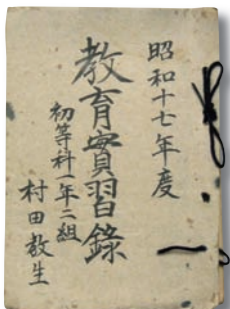 昭和十七年度
教育實習錄
初等科一年二組
村田教生